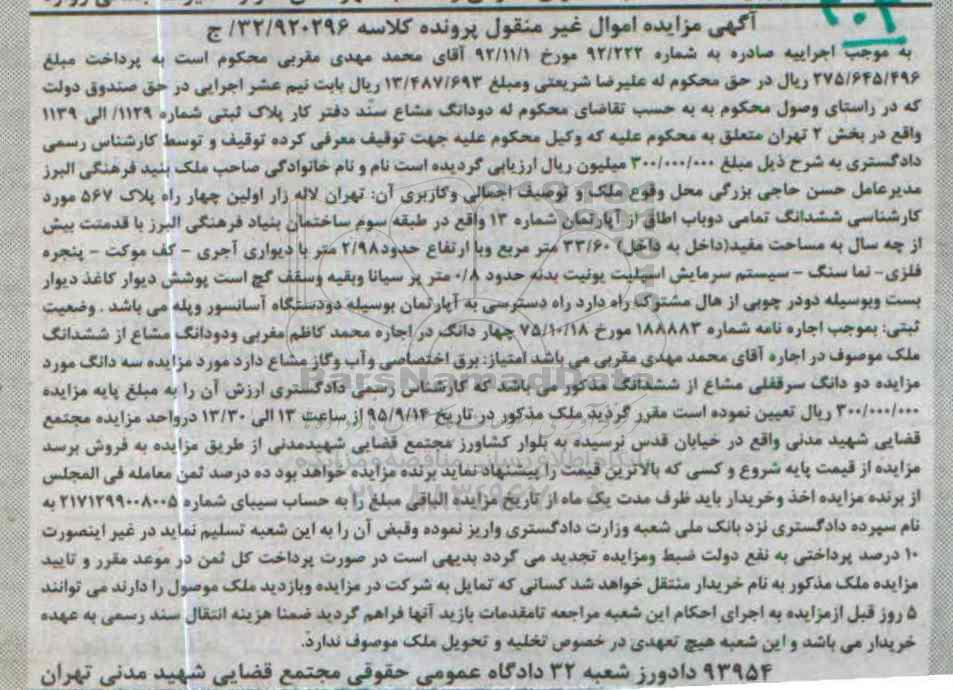 ۲۰۲
آگهی مزایده اموال غیر منقول پرونده کلاسه ۳۲/۹۲۰۲۹۶/ ج
به موجب اجراییه صادره به شماره ۹۲/۲۲۲ مورخ ۹۲/۱۱/۱ آقای محمد مهدی مقربی محکوم است به پرداخت مبلغ
۲۷۵/۶۴۵/۴۹۶ ریال در حق محکوم له علیرضا شریعتی ومبلغ ۱۳/۴۸۷/۶۹۳ ریال بابت نیم عشر اجرایی در حق صندوق دولت
که در راستای وصول محکوم به به حسب تقاضای محکوم له دودانگ مشاع سند دفتر کار پلاک ثبتی شماره ۱۱۲۹/ الی ۱۱۳۹
واقع در بخش ۲ تهران متعلق به محکوم علیه که وکیل محکوم علیه جهت توقیف معرفی کرده توقیف و توسط کارشناس رسمی
دادگستری به شرح ذیل مبلغ ۳۰۰/۰۰۰/۰۰۰ میلیون ریال ارزیابی گردیده است نام و نام خانوادگی صاحب ملک بنید فرهنگی البرز
مدیرعامل حسن حاجی بزرگی محل وقوع ملک و توصیف اجمالی وکاربری آن: تهران لاله زار اولین چهار راه پلاک ۵۶۷ مورد
کارشناسی ششدانگ تمامی دوباب اطاق از آپارتمان شماره ۱۳ واقع در طبقه سوم ساختمان بنیاد فرهنگی البرز با قدمتت بیش
از چه سال به مساحت مفید(داخل به داخل) ۳۳/۶۰ متر مربع وبا ارتفاع حدود۲/۹۸ متر با دیواری آجری - کف موکت - پنجره
فلزی- نما سنگ - سیستم سرمایش اسپلیت یونیت بدنه حدود ۰/۸ متر پر سیانا وبقیه وسقف گچ است پوشش دیوار کاغذ دیوار
بست وبوسیله دودر چوبی از هال مشترک راه دارد راه دسترسی به آپارتمان بوسیله دودستگاه آسانسور وپله می باشد . وضعیت
ثبتی: بموجب اجاره نامه شماره ۱۸۸۸۸۳ مورخ ۷۵/۱۰/۱۸ چهار دانگ در اجاره محمد کاظم مغربی ودودانگ مشاع از ششدانگ
ملک موصوف در اجاره آقای محمد مهدی مقربی می باشد امتیاز: برق اختصاصی وآب وگاز مشاع دارد مورد مزایده سه دانگ مورد
مزایده دو دانگ سرقفلی مشاع از ششدانگ مذکور می باشد که کارشناس رسمی دادگستری ارزش آن را به مبلغ پایه مزایده
۳۰۰/۰۰۰/۰۰۰ ریال تعیین نموده است مقرر گردید ملک مذکور در تاریخ ۹۵/۹/۱۴ از ساعت ۱۳ الی ۱۳/۳۰ درواحد مزایده مجتمع
قضایی شهید مدنی واقع در خیابان قدس نرسیده به بلوار کشاورز مجتمع قضایی شهیدمدنی از طریق مزایده به فروش برسد
مزایده از قیمت پایه شروع و کسی که بالاترین قیمت را پیشنهاد نماید برنده مزایده خواهد بود ده درصد ثمن معامله فی المجلس
از برنده مزایده اخذ وخریدار باید ظرف مدت یک ماه از تاریخ مزایده الباقی مبلغ را به حساب سیبای شماره ۲۱۷۱۲۹۹۰۰۸۰۰۵ به
نام سپرده دادگستری نزد بانک ملی شعبه وزارت دادگستری واریز نموده وقبض آن را به این شعبه تسلیم نماید در غیر اینصورت
۱۰ درصد پرداختی به نفع دولت ضبط ومزایده تجدید می گردد بدیهی است در صورت پرداخت کل ثمن در موعد مقرر و تایید
مزایده ملک مذکور به نام خریدار منتقل خواهد شد کسانی که تمایل به شرکت در مزایده وبازدید ملک موصول را دارند می توانند
۵ روز قبل ازمزایده به اجرای احکام این شعبه مراجعه تامقدمات بازید آنها فراهم گردید ضمنا هزینه انتقال سند رسمی به عهده
خریدار می باشد و این شعبه هیچ تعهدی در خصوص تخلیه و تحویل ملک موصوف ندارد.
۹۳۹۵۴ دادورز شعبه ۳۲ دادگاه عمومی حقوقی مجتمع قضایی شهید مدنی تهران
ParsNamadData